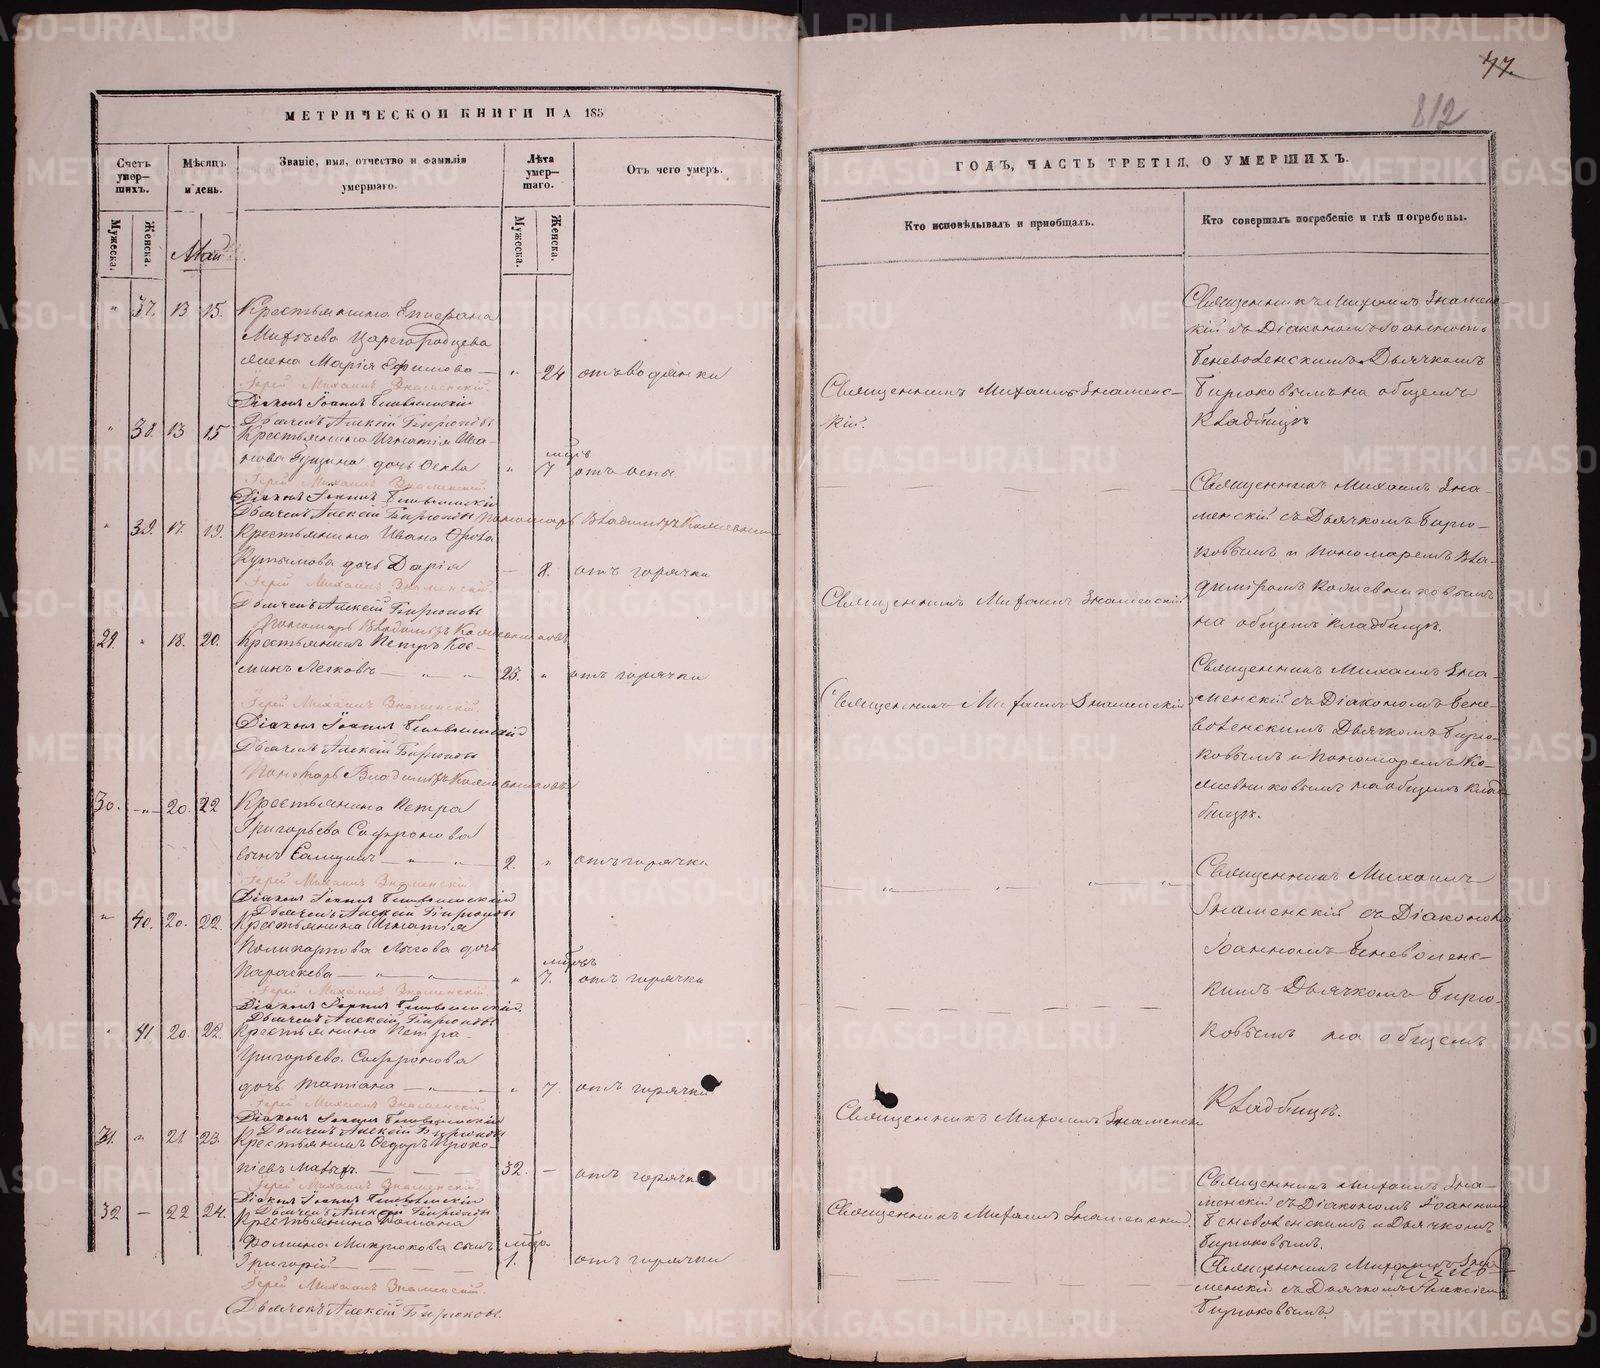 МЕТРИЧЕСКОЙ КНИГИ НА 185
Счетъ умер-
шихъ.
Мѣсяцъ
и день.
Званіе, имя, отчество и фамилія
умершаго.
Лѣта
умер-
шаго.
Отъ чего умеръ.
Мужеска.
Женска.
Мужеска.
Женска.
Май
" 37. 13 15. Крестьянина
Царегородцева
жена Марія Ефимова — " 24 отъ водянки
Іерей Михаилъ Знаменскій.
Діаконъ Іоаннъ Беневоленскій
Дьячекъ Алексій Бирюковъ
" 38. 13 15 Крестьянина Игнатія Ива-
нова дочь " 7 отъ оспы
Іерей Михаилъ Знаменскій
Діаконъ Іоаннъ Беневоленскій
Дьячекъ Алексій Бирюковъ Пономарь Владиміръ
" 39. 17. 19. Крестьянина Ивана
дочь Дарія — 8. отъ горячки
Іерей Михаилъ Знаменскій
Дьячекъ Алексій Бирюковъ
Пономарь Владиміръ
29. " 18. 20. Крестьянинъ Петръ Кос-
минъ Легковъ — " — " 25. " отъ горячки
Іерей Михаилъ Знаменскій.
Діаконъ Іоаннъ Беневоленскій
Дьячекъ Алексій Бирюковъ
Пономарь Владиміръ
30. — " — 20. 22 Крестьянина Петра
Григорьева Софронова
сынъ — " — " 2. " отъ горячки
Іерей Михаилъ Знаменскій
Діаконъ Іоаннъ Беневоленскій
Дьячекъ Алексій Бирюковъ
" 40. 20. 22. Крестьянина Игнатія
Поликарпова дочь
Параскева — " — " — " 7. отъ горячки
Іерей Михаилъ Знаменскій
Діаконъ Іоаннъ Беневоленскій
Дьячекъ Алексій Бирюковъ
" 41 20. 22. Крестьянина Петра
Григорьева Софронова
дочь Татіана — " — " 7. отъ горячки
Іерей Михаилъ Знаменскій
Діаконъ Іоаннъ Беневоленскій
Дьячекъ Алексій Бирюковъ
31. " 21 23. Крестьянинъ Ѳедоръ Проко-
піевъ — 32. — отъ горячки
Іерей Михаилъ Знаменскій
Діаконъ Іоаннъ Беневоленскій
Дьячекъ Алексій Бирюковъ
32 — 22 24. Крестьянина Романа
Микрюкова сынъ
Григорій — 1. отъ горячки
Іерей Михаилъ Знаменскій.
Дьячекъ Алексій Бирюковъ.
77.
812
ГОДЪ, ЧАСТЬ ТРЕТІЯ, О УМЕРШИХЪ.
Кто исповѣдывалъ и пріобщалъ.
Кто совершалъ погребеніе и гдѣ погребены.
Священникъ Михаилъ Знаменс-
кій.
Священникъ Михаилъ Знаменскій
Священникъ Михаилъ Знаменскій
Священникъ Михаилъ Знаменскій
Священникъ Михаилъ Знаменскій.
Священникъ Михаилъ Знаменс-
кій съ Діакономъ Іоанномъ
Беневоленскимъ Дьячкомъ
Бирюковымъ на общемъ
кладбищѣ
Священникъ Михаилъ Зна-
менскій съ Дьячкомъ Бирю-
ковымъ и пономаремъ Вла-
диміромъ
на общемъ кладбищѣ.
Священникъ Михаилъ Зна-
менскій съ Діакономъ Бене-
воленскимъ Дьячкомъ Бирю-
ковымъ и пономаремъ
на общемъ клад-
бищѣ.
Священникъ Михаилъ
Знаменскій съ Діакономъ
Іоанномъ Беневоленс-
кимъ Дьячкомъ Бирю-
ковымъ на общемъ
кладбищѣ.
Священникъ Михаилъ Зна-
менскій съ Діакономъ Іоанномъ
Беневоленскимъ и Дьячкомъ
Бирюковымъ.
Священникъ Михаилъ Зна-
менскій съ Дьячкомъ Алексіемъ
Бирюковымъ.
METRIKI.GASO-URAL.RU